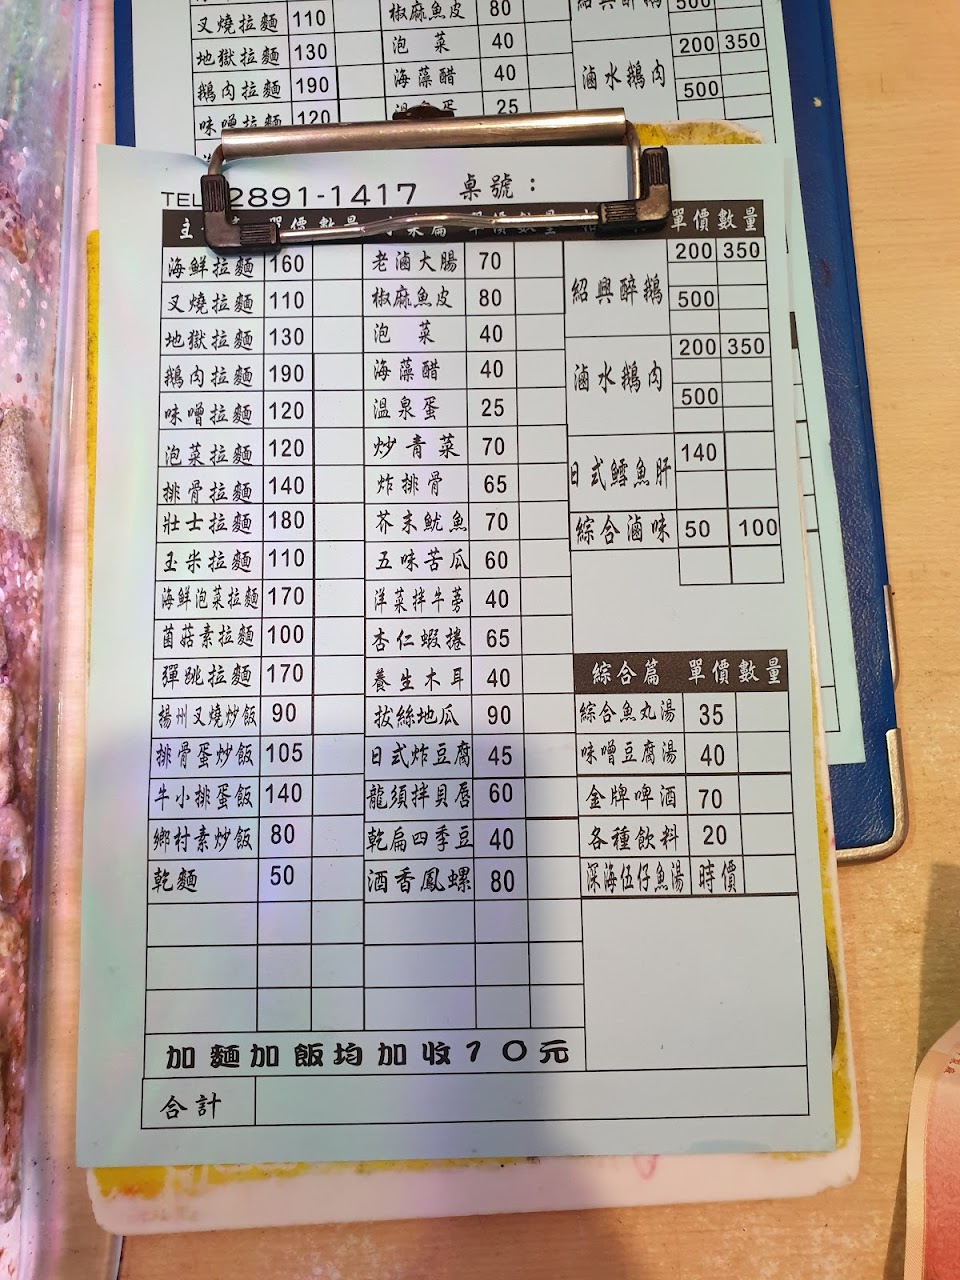 叉燒拉麵 110 椒麻魚皮 80 500
地獄拉麵 130 泡菜 40 滷水鵝肉 200 350
鵝肉拉麵 190 海藻醋 40 500
味噌拉麵 120 溫泉蛋 25
TEL 2891-1417 桌號：
主 單價 數量 單價 數量 單價 數量
海鮮拉麵 160 老滷大腸 70 紹興醉鵝 200 350
叉燒拉麵 110 椒麻魚皮 80 500
地獄拉麵 130 泡菜 40 滷水鵝肉 200 350
鵝肉拉麵 190 海藻醋 40
味噌拉麵 120 溫泉蛋 25 500
泡菜拉麵 120 炒青菜 70 日式鱈魚肝 140
排骨拉麵 140 炸排骨 65
壯士拉麵 180 芥末魷魚 70 綜合滷味 50 100
玉米拉麵 110 五味苦瓜 60
海鮮泡菜拉麵 170 洋菜拌牛蒡 40
菌菇素拉麵 100 杏仁蝦捲 65
彈跳拉麵 170 養生木耳 40 綜合篇 單價 數量
揚州叉燒炒飯 90 拔絲地瓜 90 綜合魚丸湯 35
排骨蛋炒飯 105 日式炸豆腐 45 味噌豆腐湯 40
牛小排蛋飯 140 龍須拌貝唇 60 金牌啤酒 70
鄉村素炒飯 80 乾扁四季豆 40 各種飲料 20
乾麵 50 酒香鳳螺 80 深海伍仔魚湯 時價
加麵加飯均加收10元
合計